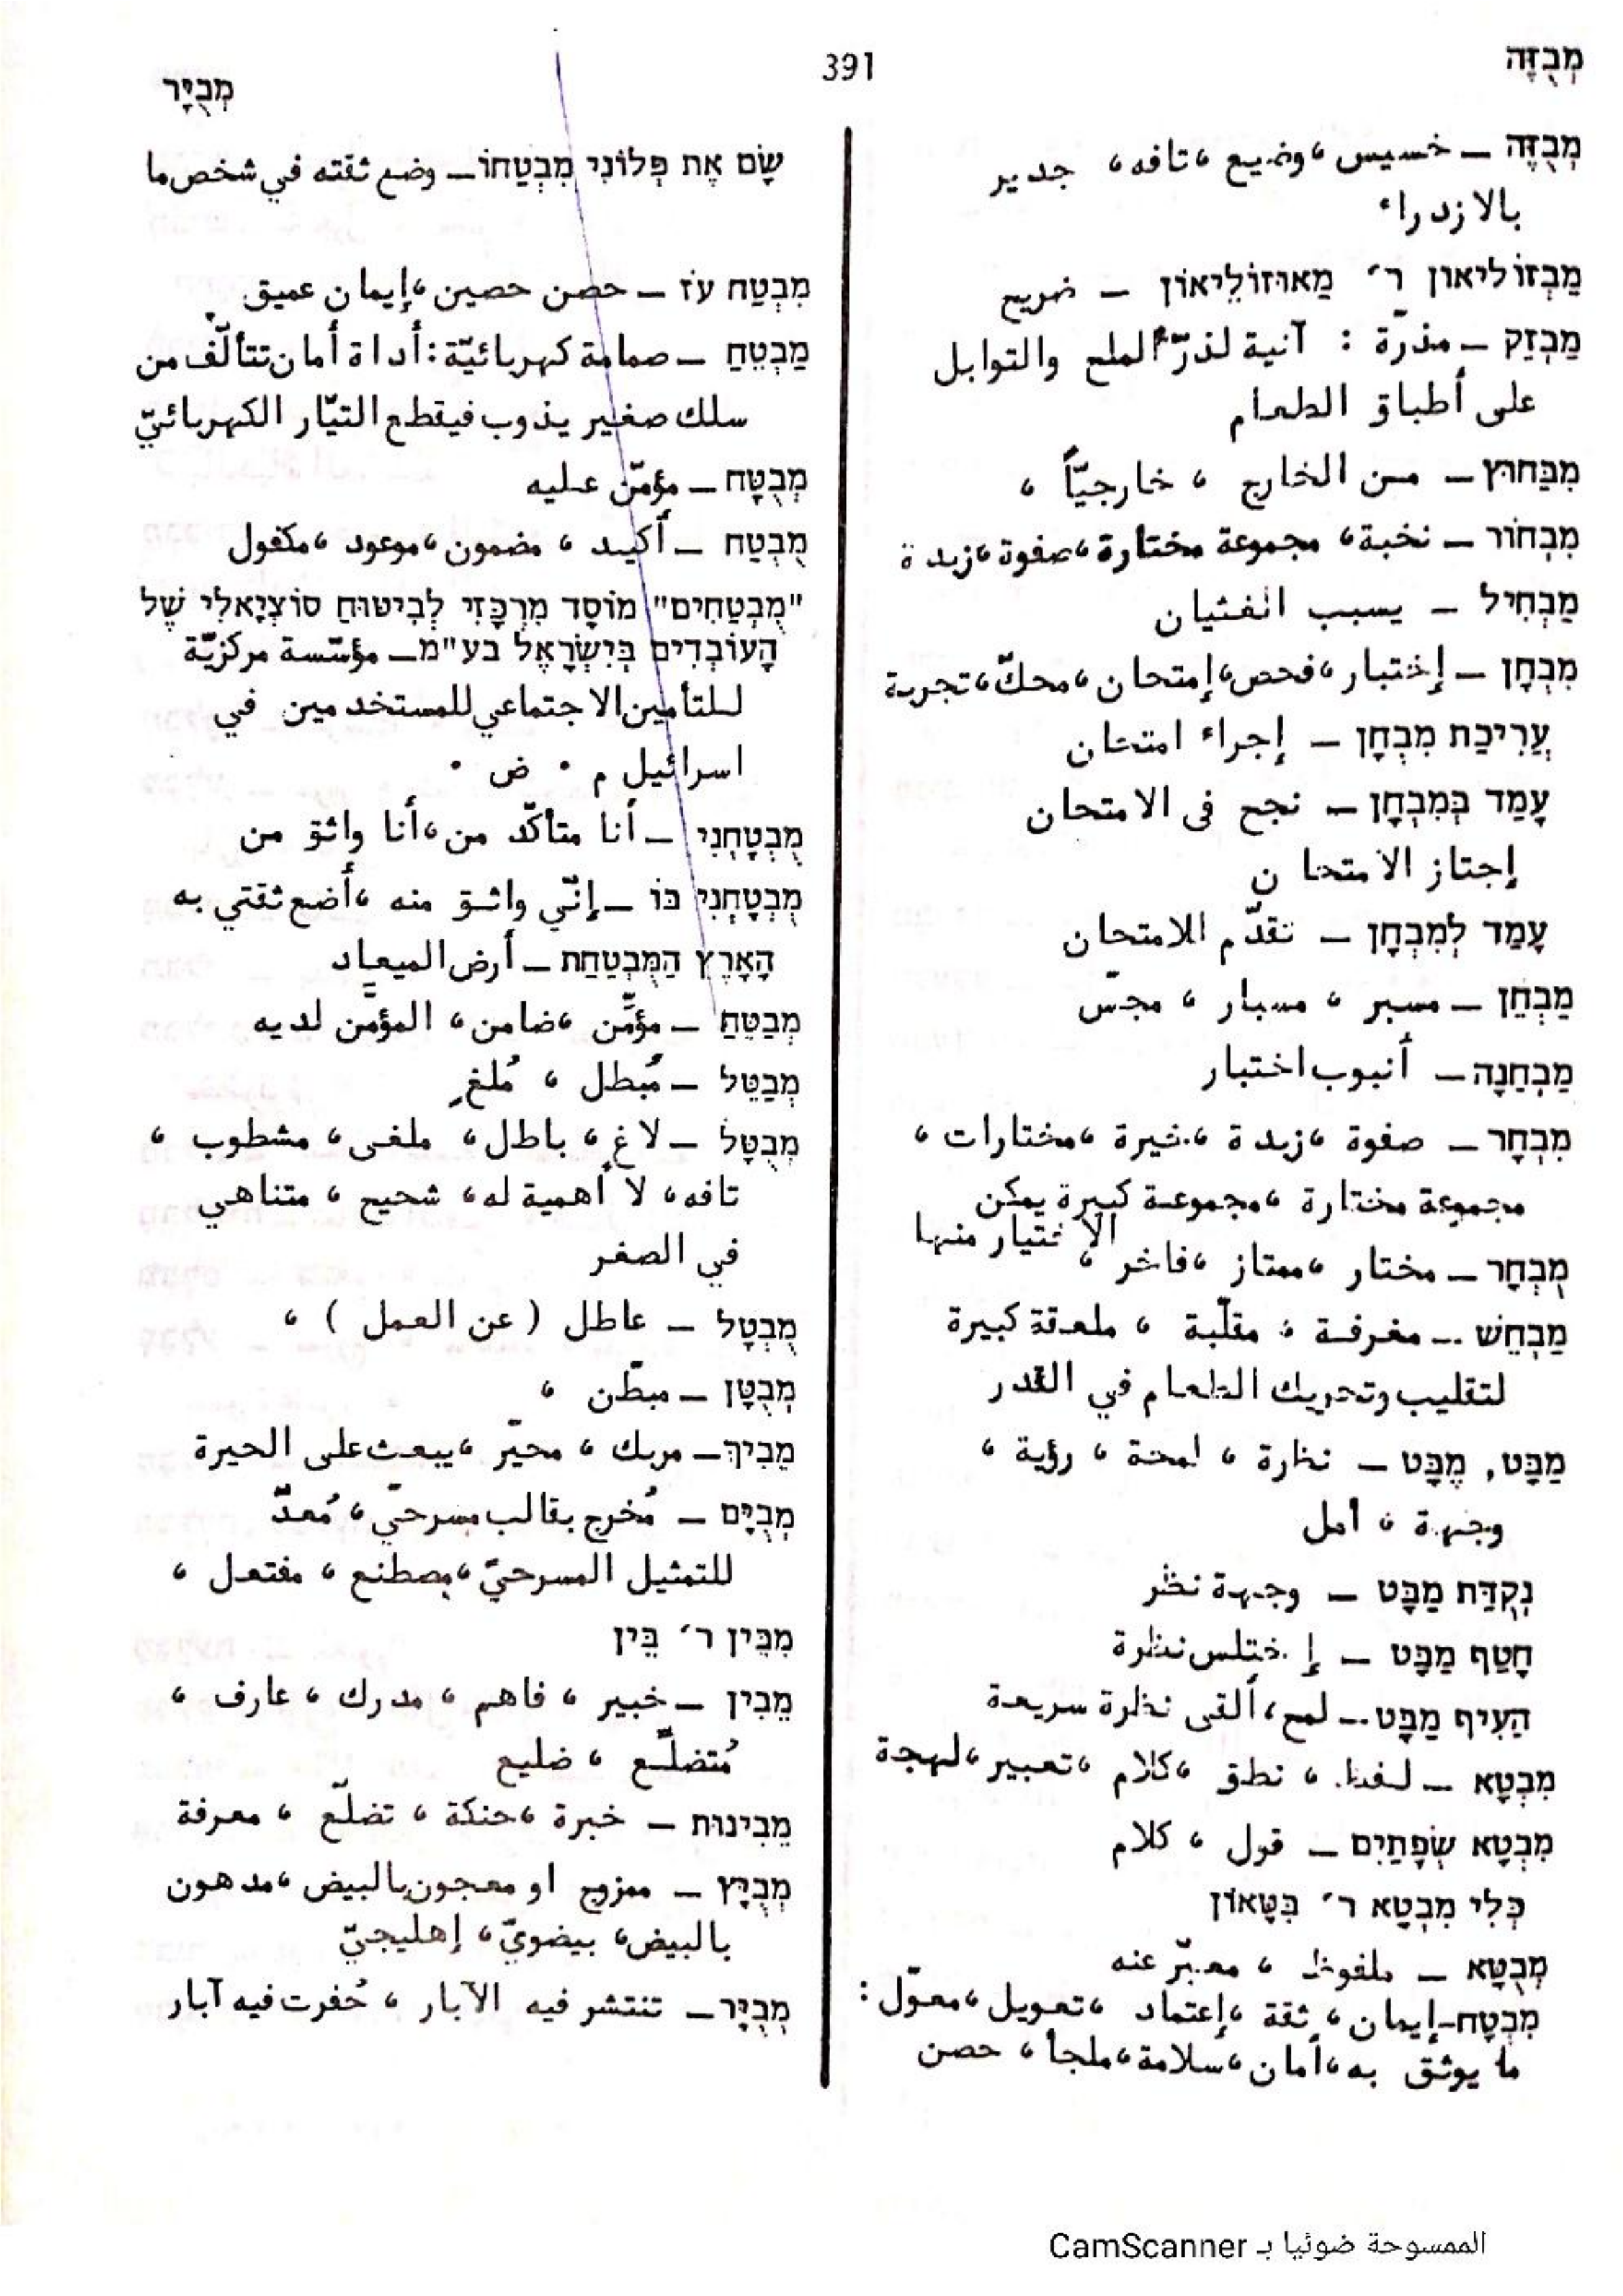 מְבֻזֶּה
391
מְבֻיָּר
מְבֻזֶּה – خسيس ، وضيع ، تافه ، جدير
بالازدراء
מַבְזוֹלֵיאוּן ר׳ מַאוּזוֹלֵיאוֹן – ضريح
מַבְזֵק – مذرّة : آنية لذرّ الملح والتوابل
على أطباق الطعام
מִבַּחוּץ – من الخارج ، خارجيّاً ،
מִבְחוֹר – نخبة ، مجموعة مختارة ، صفوة ، زبدة
מַבְחִיל – يسبب الغثيان
מִבְחָן – إختبار ، فحص ، إمتحان ، محكّ ، تجربة
עֲרִיכַת מִבְחָן – إجراء امتحان
עָמַד בְּמִבְחָן – نجح في الامتحان
إجتاز الامتحان
עָמַד לְמִבְחָן – تقدّم للامتحان
מַבְחֵן – مسبر ، مسبار ، مجسّ
מַבְחֵנָה – أنبوب اختبار
מִבְחָר – صفوة ، زبدة ، خيرة ، مختارات ،
مجموعة مختارة ، مجموعة كبيرة يمكن
الاختيار منها
מֻבְחָר – مختار ، ممتاز ، فاخر ،
מַבְחֵשׁ – مغرفة ، مقلّبة ، ملعقة كبيرة
لتقليب وتحريك الطعام في القدر
מַבָּט, מֶבָּט – نظارة ، لمحة ، رؤية ،
وجهة ، أمل
נְקֻדַּת מַבָּט – وجهة نظر
חָטַף מַבָּט – إختلس نظرة
הֵעִיף מַבָּט – لمح ، ألقى نظرة سريعة
מִבְטָא – لفظ ، نطق ، كلام ، تعبير ، لهجة
מִבְטָא שְׂפָתַיִם – قول ، كلام
כְּלִי מִבְטָא ר׳ בִּטָּאוֹן
מְבֻטָּא – ملفوظ ، معبّر عنه
מִבְטָח – إيمان ، ثقة ، إعتماد ، تعويل ، معوّل :
ما يوثق به ، أمان ، سلامة ، ملجأ ، حصن
שָׂם אֶת פְּלוֹנִי מִבְטַחוֹ – وضع ثقته في شخص ما
מִבְטַח עֹז – حصن حصين ، إيمان عميق
מַבְטֵחַ – صمامة كهربائيّة : أداة أمان تتألّف من
سلك صغير يذوب فيقطع التيّار الكهربائيّ
מְבֻטָּח – مؤمّن عليه
מֻבְטַח – أكيد ، مضمون ، موعود ، مكفول
"מִבְטַחִים" מוֹסָד מֶרְכָּזִי לְבִיטוּחַ סוֹצְיָאלִי שֶׁל
הָעוֹבְדִים בְּיִשְׂרָאֵל בע"מ – مؤسّسة مركزيّة
للتأمين الاجتماعي للمستخدمين في
اسرائيل م ٠ ض ٠
מֻבְטָחְנִי – أنا متأكّد من ، أنا واثق من
מֻבְטָחְנִי בּוֹ – إنّي واثق منه ، أضع ثقتي به
הָאָרֶץ הַמֻּבְטַחַת – أرض الميعاد
מְבַטֵּחַ – مؤمِّن ، ضامن ، المؤمَّن لديه
מְבַטֵּל – مُبطل ، مُلغٍ
מְבֻטָּל – لاغٍ ، باطل ، ملغى ، مشطوب ،
تافه ، لا أهمية له ، شحيح ، متناهي
في الصغر
מֻבְטָל – عاطل ( عن العمل ) ،
מְבֻטָּן – مبطّن ،
מֵבִיךְ – مربك ، محيّر ، يبعث على الحيرة
מְבֻיָּם – مُخرج بقالب مسرحيّ ، مُعدّ
للتمثيل المسرحيّ ، مصطنع ، مفتعل ،
מִבֵּין ר׳ בֵּין
מֵבִין – خبير ، فاهم ، مدرك ، عارف ،
مُتضلّع ، ضليع
מֵבִינוּת – خبرة ، حنكة ، تضلّع ، معرفة
מְבֻיָּץ – ممزوج او معجون بالبيض ، مدهون
بالبيض ، بيضويّ ، إهليجيّ
מְבֻיָּר – تنتشر فيه الآبار ، حُفرت فيه آبار
الممسوحة ضوئيا بـ CamScanner